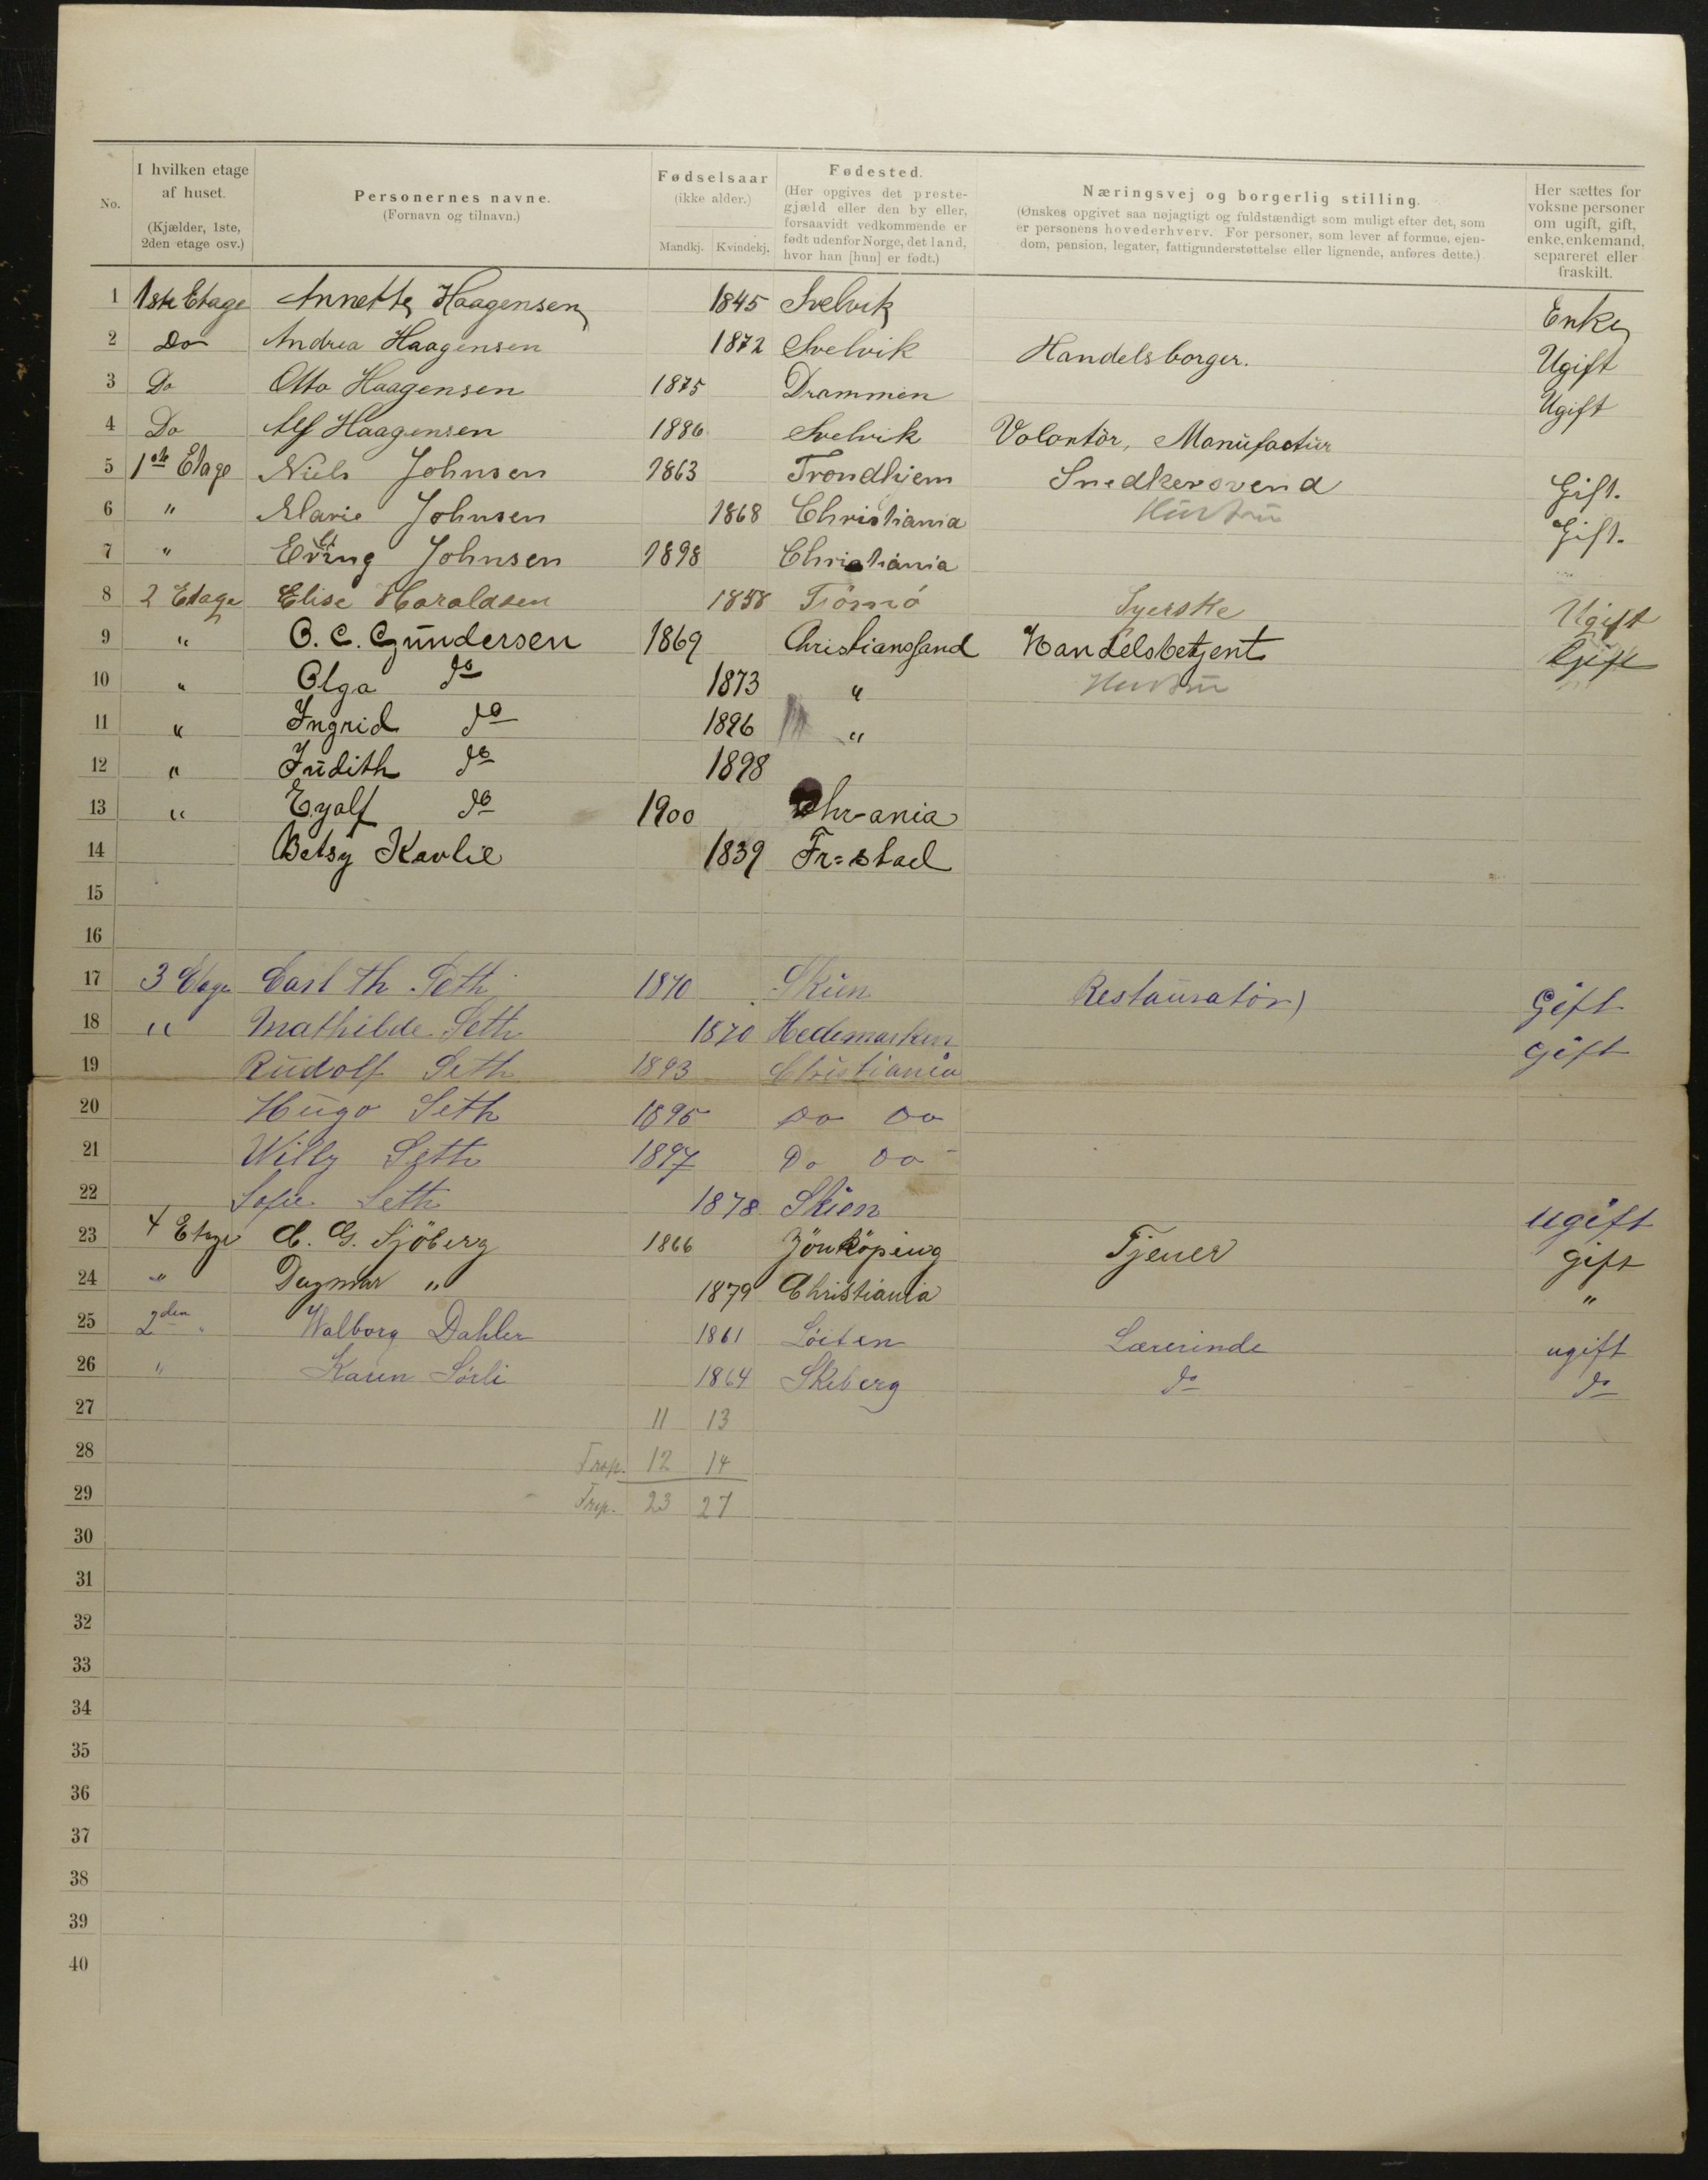 No. I hvilken etage af huset. (Kjælder, 1ste, 2den etage osv.) Personernes navne. (Fornavn og tilnavn.) Fødselsaar (ikke alder.) Mandkj. Kvindekj. Fødested. (Her opgives det prestegjæld eller den by eller, forsaavidt vedkommende er født udenfor Norge, det land, hvor han [hun] er født.) Næringsvej og borgerlig stilling. (Ønskes opgivet saa nøjagtigt og fuldstændigt som muligt efter det, som er personens hovederhverv. For personer, som lever af formue, ejendom, pension, legater, fattigunderstøttelse eller lignende, anføres dette.) Her sættes for voksne personer om ugift, gift, enke, enkemand, separeret eller fraskilt.
1 1ste Etage Annette Haagensen 1845 Svelvik Enke
2 Do Andrea Haagensen 1872 Svelvik Handelsborger. Ugift
3 Do Otto Haagensen 1875 Drammen Ugift
4 Do Alf Haagensen 1886 Svelvik Volontör, Manufactur
5 1ste Etage Niels Johnsen 1863 Trondhiem Snedkersvend Gift.
6 " Marie Johnsen 1868 Christiania Hustru Gift.
7 " Johnsen 1898 Christiania
8 2 Etage Elise Haraldsen 1858 Trömö Syerske Ugift
9 " O. C. Gundersen 1869 Christianssand Handelsbetjent Gift
10 " Olga do 1873 " Hustru
11 " Ingrid do 1896 "
12 " Judith do 1898
13 " Eyolf do 1900 Chr-ania
14 Betsy Kavlie 1839 Fr=stad
15
16
17 3 Etage Carl Th. Seth 1870 Skien Restauratör Gift
18 " Mathilde Seth 1870 Hedemarken Gift
19 Rudolf Seth 1893 Christiania
20 Hugo Seth 1895 Do Do
21 Willy Seth 1897 Do Do
22 Sofie Seth 1878 Skien ugift
23 4 Etage C. G. Sjöberg 1866 Jönköping Tjener gift
24 " Dagmar " 1879 Christiania "
25 2den " Walborg Dahler 1861 Löiten Lærerinde ugift
26 " Karen Sörli 1864 Skeberg do do
27 11 13
28 Trsp. 12 14
29 Trsp. 23 27
30
31
32
33
34
35
36
37
38
39
40